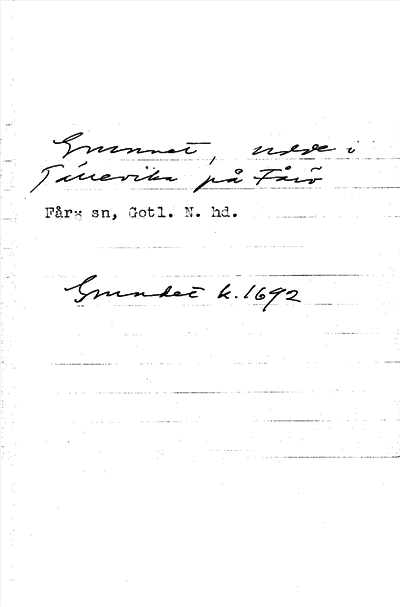 Grunnet, udde i
Tällevika på Fårö
Fårö sn, Gotl. N. hd.
Grundet k. 1692